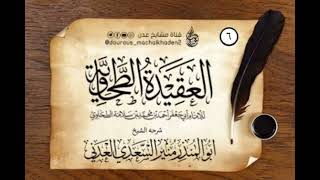 قناة مشايخ عدن
@dourous_machaikhaden2
٦
العقيدة الطحاوية
للإمام أبي جعفر أحمد بن محمد بن سلامة الطحاوي
شرحه الشيخ
أبو المنذر منير السعدي العدني